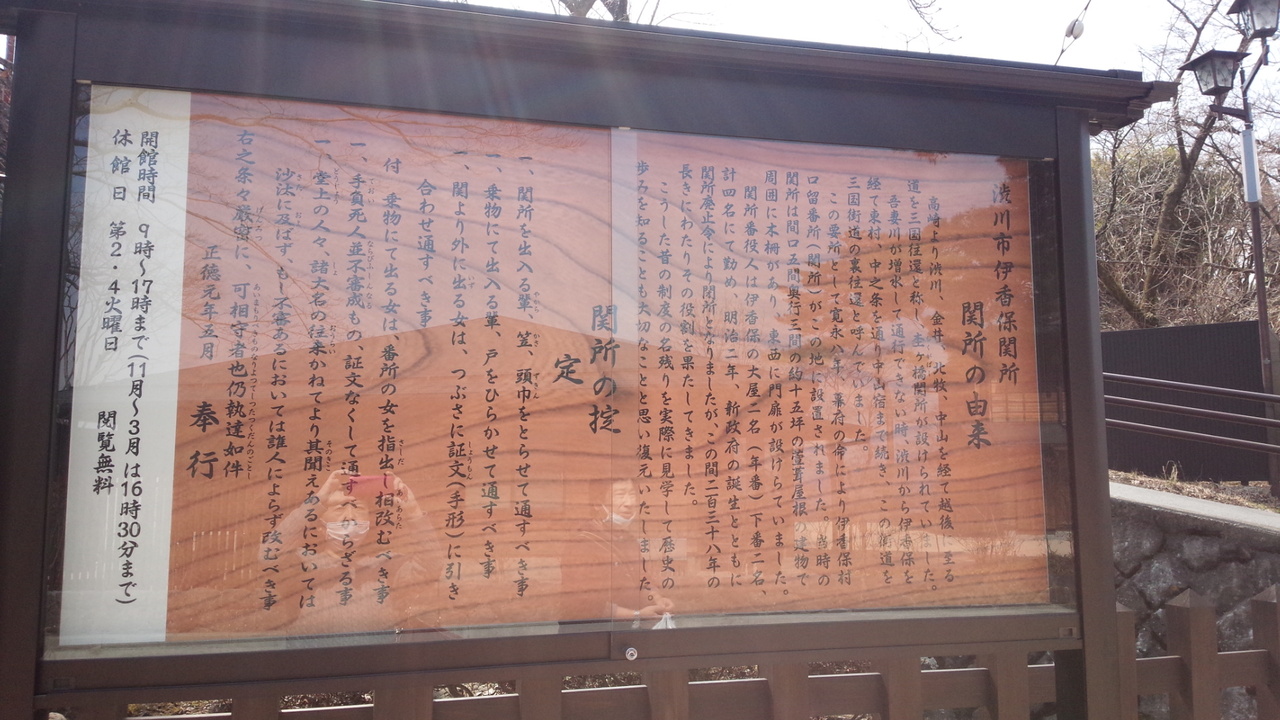 渋川市伊香保関所
関所の由来
高崎より渋川、金井、北牧、中山を経て越後に至る
道を三国往還と称し、杢ヶ橋関所が設けられていました。
吾妻川が増水して通行できない時、渋川から伊香保を
経て東村、中之条を通り中山宿まで続き、この街道を
三国街道の裏往還と呼んでいました。
この要所として寛永八年、幕府の命により伊香保村
口留番所(関所)がこの地に設置されました。当時の
関所は間口五間奥行三間の約十五坪の萱葺屋根の建物で
周囲に木柵があり、東西に門扉が設けらていました。
関所番役人は伊香保の大屋二名(年番)下番二名、
計四名にて勤め、明治二年、新政府の誕生とともに
関所廃止令により関所となりましたが、この間二百三十八年の
長きにわたりその役割を果たしてきました。
こうした昔の制度の名残りを実際に見学して歴史の
歩みを知ることも大切なことと思い復元いたしました。
関所の掟
定
一、関所を出入る輩、笠、頭巾をとらせて通すべき事
一、乗物にて出入る輩、戸をひらかせて通すべき事
一、関より外に出る女は、つぶさに証文(手形)に引き
合わせ通すべき事
付 乗物にて出る女は、番所の女を指出し相改むべき事
一、手負死人並不審成もの、証文なくして通すべからざる事
一、堂上の人々、諸大名の往来かねてより其聞えあるにおいては
沙汰に及ばず、もし不審あるにおいては誰人によらず改むべき事
右之条々厳密に、可相守者也仍執達如件
正徳元年五月
奉行
開館時間 9時〜17時まで(11月〜3月は16時30分まで)
休館日 第2・4火曜日 閲覧無料